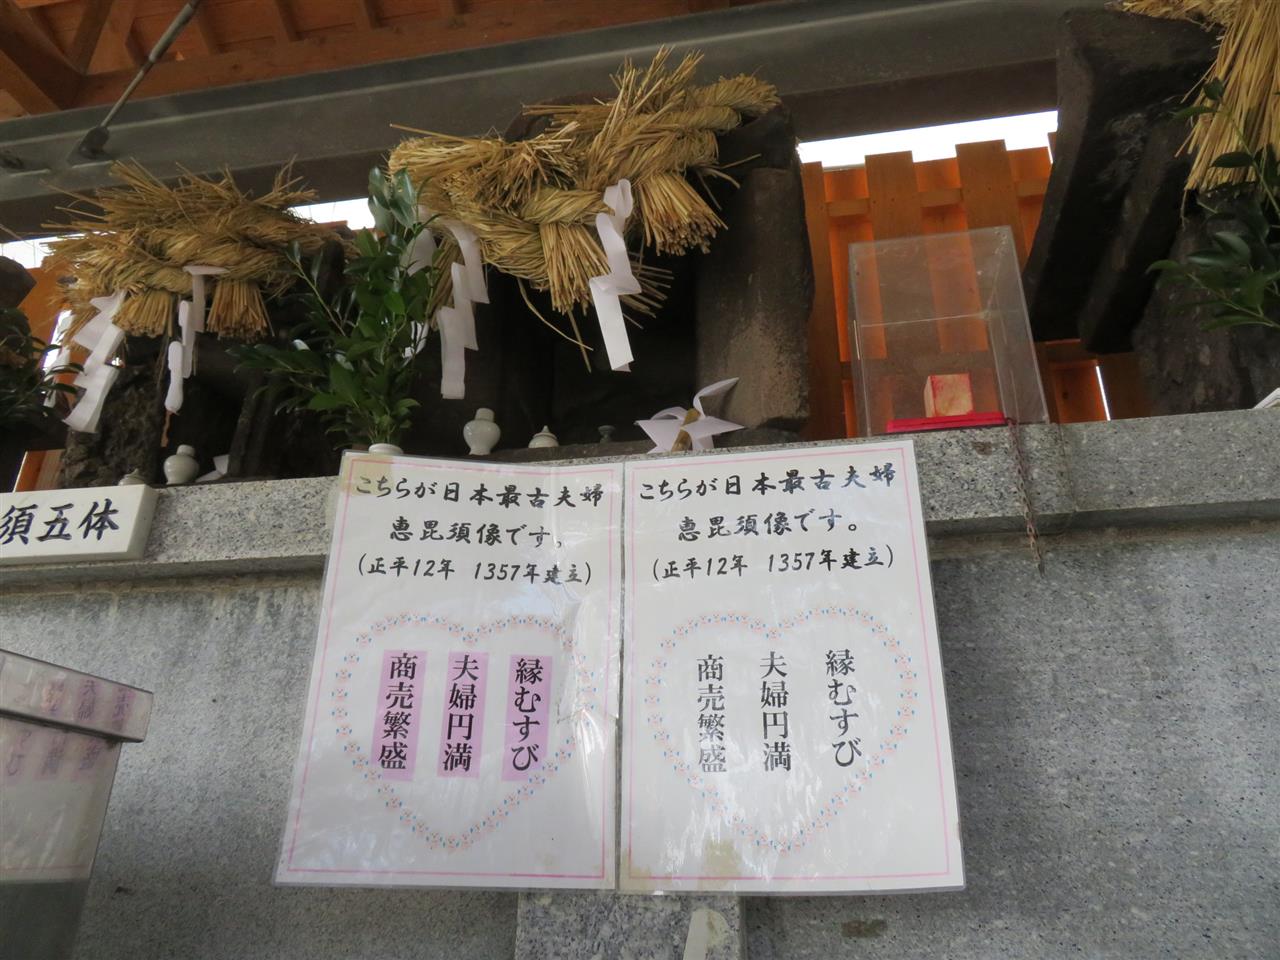 須五体
こちらが日本最古夫婦
恵毘須像です。
(正平12年 1357年建立)
縁むすび
夫婦円満
商売繁盛
こちらが日本最古夫婦
恵毘須像です。
(正平12年 1357年建立)
縁むすび
夫婦円満
商売繁盛